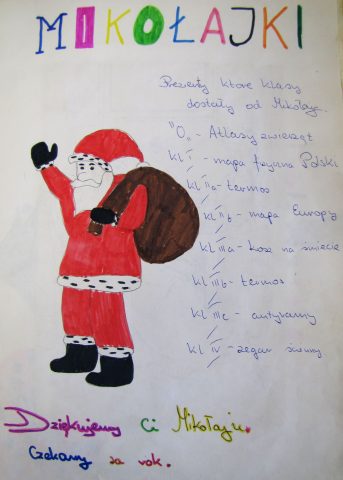 MIKOŁAJKI
Prezenty które klasy
dostały od Mikołaja.
"0" - Atlasy zwierząt
kl I - mapa fizyczna Polski
kl II a - termos
kl II b - mapa Europy
kl III a - kosz na śmiecie
kl III b - termos
kl III c - antyramy
kl IV - zegar ścienny
Dziękujemy Ci Mikołaju.
Czekamy za rok.